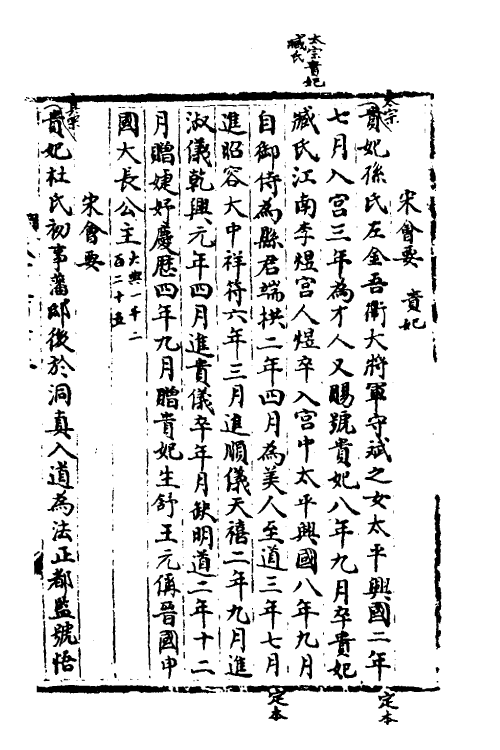 太宗貴妃
臧氏
宋會要 貴妃
太宗
貴妃孫氏左金吾衛大將軍守斌之女太平興國二年
七月入宮三年為才人又賜號貴妃八年九月卒貴妃
臧氏江南李煜宮人煜卒入宮中太平興國八年九月
自御侍為縣君端拱二年四月為美人至道三年七月
進昭容大中祥符六年三月進順儀天禧二年九月進
淑儀乾興元年四月進貴儀卒年月缺明道二年十二
月贈婕妤慶歷四年九月贈貴妃生舒王元偁晉國申
國大長公主大典一千二
百二十五
宋會要
真宗
貴妃杜氏初事藩邸後於洞真入道為法正都監號悟
定本
定本